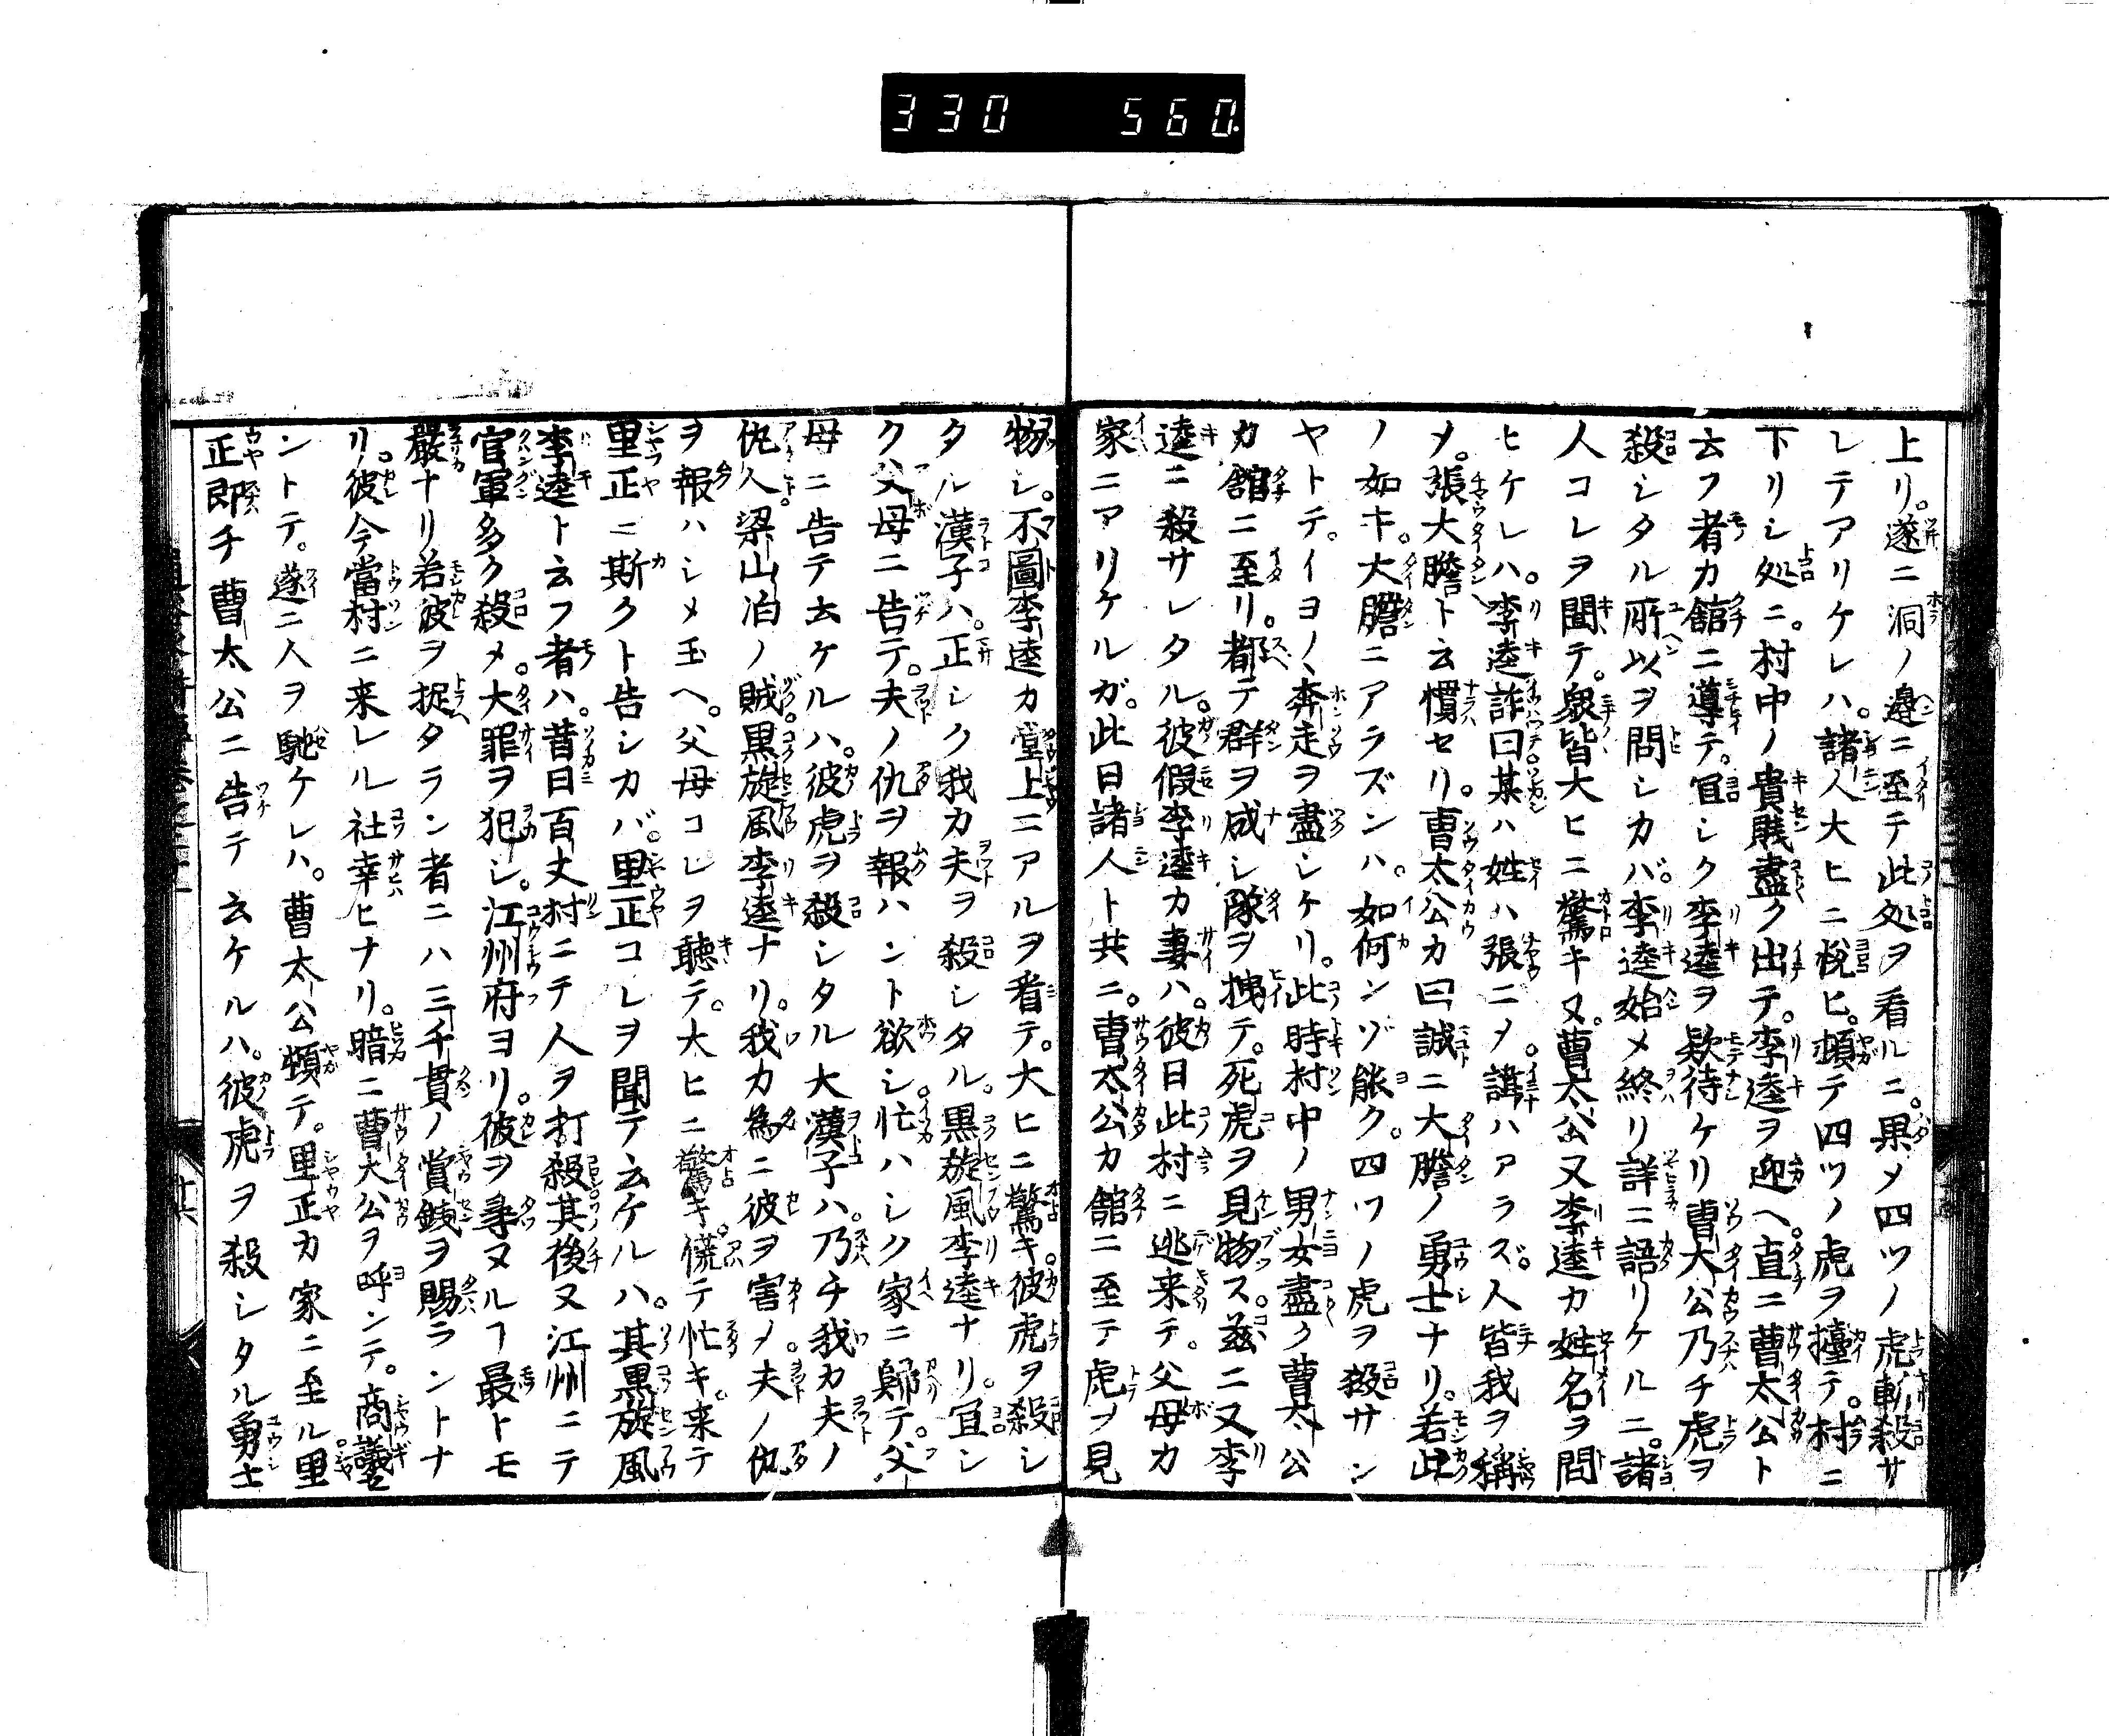 330 560.
上リ。遂ニ洞ノ邉ニ至テ此処ヲ看ルニ。果メ四ツノ虎斬殺サ
レテアリケレハ。諸人大ヒニ悦ヒ。頓テ四ツノ虎ヲ擡テ。村ニ
下リシ処ニ。村中ノ貴賎盡ク出テ。李逵ヲ迎ヘ。直ニ曹太公ト
云フ者カ舘ニ導テ。宜シク李逵ヲ欵待ケリ曹大公乃チ虎ヲ
殺シタル所以ヲ問シカバ。李逵始メ終リ詳ニ語リケルニ。諸
人コレヲ聞テ。衆皆大ヒニ驚キ又。曹太公又李逵カ姓名ヲ問
ヒケレハ。李逵詐曰某ハ姓ハ張ニメ。諱ハアラズ。人皆我ヲ稱
メ。張大膽ト云慣セリ。曹太公カ曰誠ニ大膽ノ勇士ナリ。若此
ノ如キ。大膽ニアラズンハ。如何ンゾ能ク。四ツノ虎ヲ殺サン
ヤトテ。イヨ〳〵奔走ヲ盡シケリ。此時村中ノ男女盡ク曹太公
カ舘ニ至リ。都テ群ヲ成シ隊ヲ拽テ。死虎ヲ見物ス。茲ニ又李
逵ニ殺サレタル。彼假李逵カ妻ハ。彼日此村ニ逃来テ。父母カ
家ニアリケルガ。此日諸人ト共ニ。曹太公カ舘ニ至テ虎ヲ見
物シ。不圖李逵カ堂上ニアルヲ看テ。大ヒニ驚キ。彼虎ヲ殺シ
タル漢子ハ。正シク我カ夫ヲ殺シタル。黒旋風李逵ナリ。宜シ
ク父母ニ告テ。夫ノ仇ヲ報ハント欲シ。忙ハシク家ニ歸テ。父
母ニ告テ云ケルハ。彼虎ヲ殺シタル大漢子ハ。乃チ我カ夫ノ
仇人。梁山泊ノ賊黒旋風李逵ナリ。我カ為ニ彼ヲ害メ。夫ノ仇
ヲ報ハシメ玉ヘ。父母コレヲ聽テ。大ヒニ驚キ。慌テ忙キ。来テ
里正ニ斯クト告シカバ。里正コレヲ聞テ云ケルハ。其黒旋風
李逵ト云フ者ハ。昔日百丈村ニテ人ヲ打殺其後又江州ニテ
官軍多ク殺メ。大罪ヲ犯シ。江州府ヨリ。彼ヲ尋ヌルヿ最トモ
嚴ナリ若彼ヲ捉タラン者ニハ三千貫ノ賞錢ヲ賜ラントナ
リ。彼今當村ニ来レル社幸ヒナリ。暗ニ曹大公ヲ呼ンテ。商議
ントテ。遂ニ人ヲ馳ケレハ。曹太公頓テ。里正カ家ニ至ル里
正即チ曹太公ニ告テ云ケルハ。彼虎ヲ殺シタル勇士